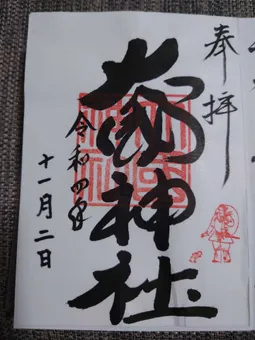 奉拝
大國神社
令和四年
十一月二日